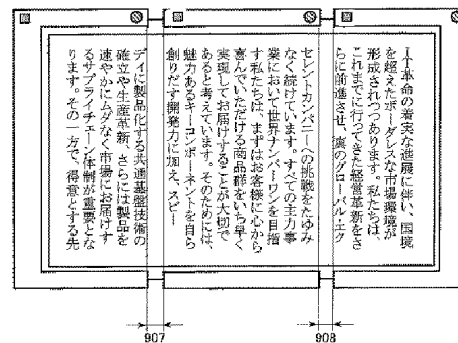 IT革命の着実な進展に伴い、国境
を超えたボーダレスな市場環境が
形成されつつあります。私たちは、
これまでに行ってきた経営革新をさ
らに前進させ、真のグローバル・エク
セレントカンパニーへの挑戦をたゆみ
なく続けています。すべての主力事
業において世界ナンバーワンを目指
す私たちは、まずはお客様に心から
喜んでいただける商品群をいち早く
実現してお届けすることが大切で
あると考えています。そのためには、
魅力あるキーコンポーネントを自ら
創りだす開発力に加え、スピー
ディに製品化する共通基盤技術の
確立や生産革新、さらには製品を
速やかにムダなく市場にお届けす
るサプライチェーン体制が重要とな
ります。その一方で、得意とする先
907
908